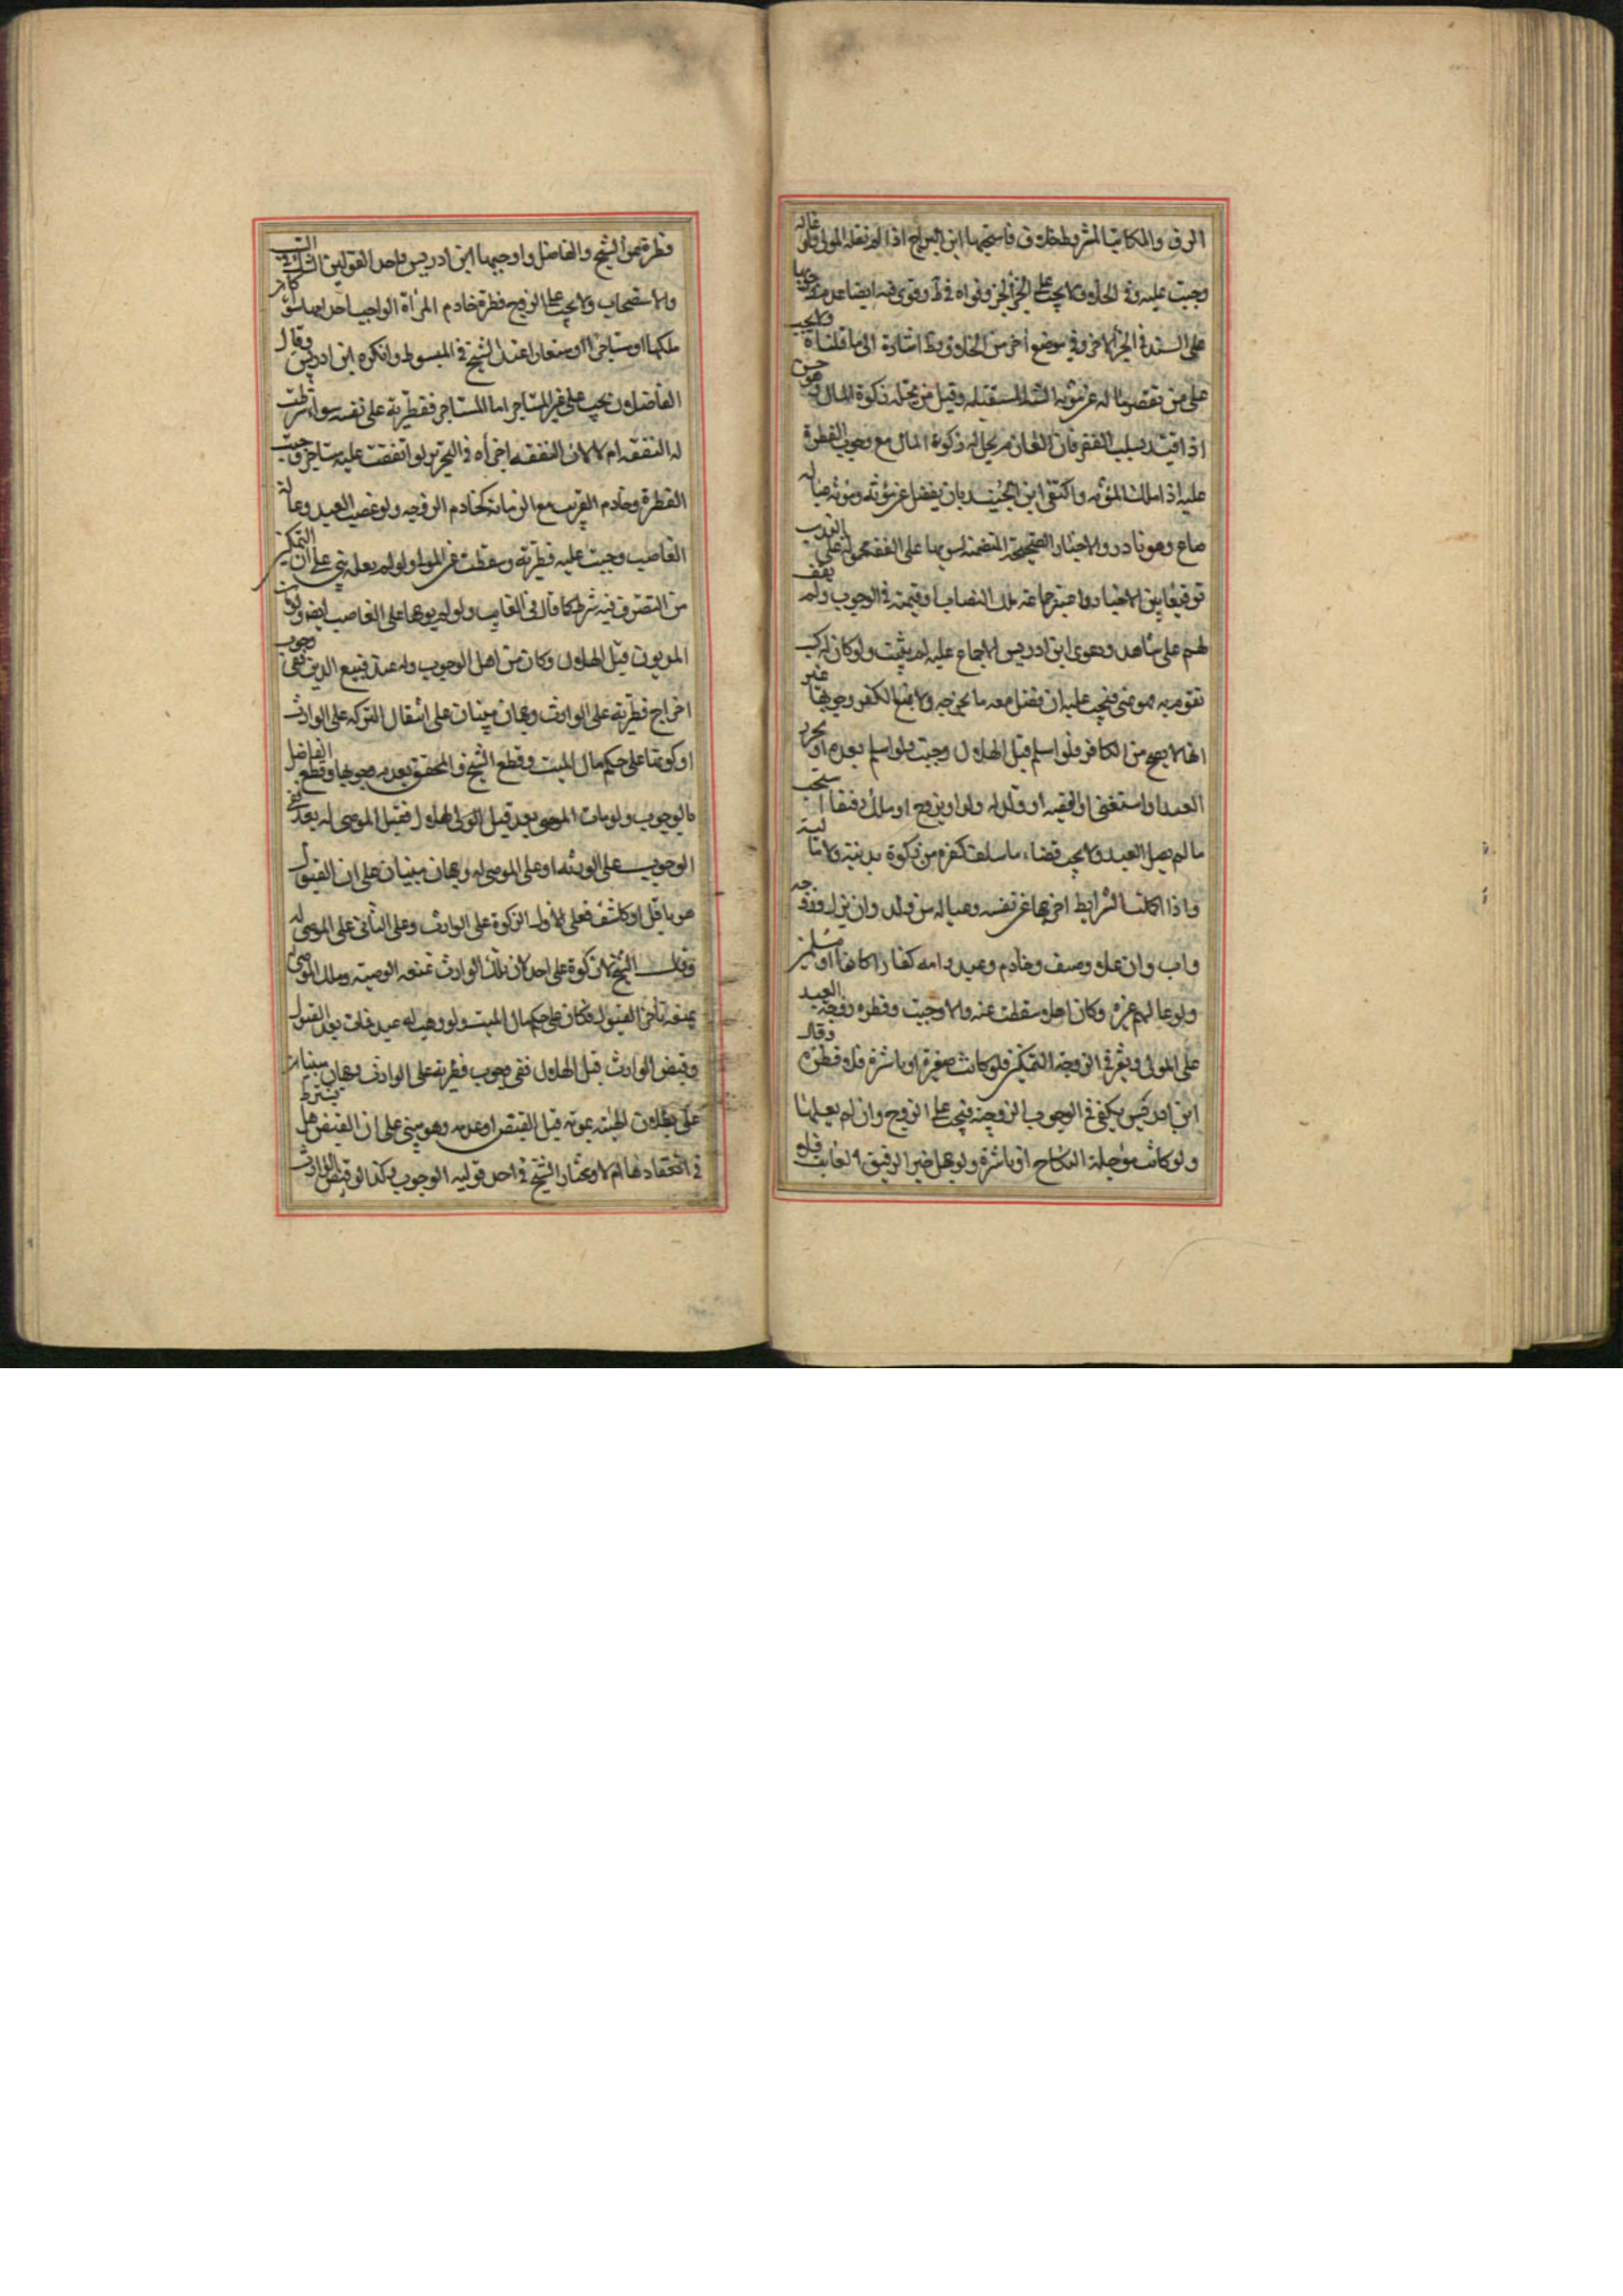 الرق والمكاتب المشروط خلاف فاستحبها ابن البراج اذا لم يعله المولى ولو عاله
وجبت عليه وفي الخلاف لا يجب على الجزء الحر وقواه في ط وقوى فيه ايضا عدم وجوبها
على السيد في الجزء الاخر وفي موضع اخر من الخلاف وط اشارة الى ما قلناه ولا يجب
على من تقصر ماله عن مؤنة السنة المستقبلة وقيل من يحل له زكوة المال وهو حسن
اذا قيد بسبب الفقر فان الغارم يحل له زكوة المال مع وجوب الفطرة
عليه اذا ملك المؤنة واكتفى ابن الجنيد بان يفضل عن مؤنته ومؤنة عياله
صاع وهو نادر والاخبار الصحيحة المتضمنة لوجوبها على الفقير محمولة على الندب
توفيقا بين الاخبار واعتبر جماعة ملك النصاب او قيمته في الوجوب ولم يقف
لهم على شاهد ودعوى ابن ادريس الاجماع عليه لم يثبت ولو كان له كسب
تقوم به فهو غني فيجب عليه ان فضل معه ما يخرجه ولا يمنع الكفر وجوبها غير
انها لا يصح من الكافر فلو اسلم قبل الهلال وجبت ولو اسلم بعده او تحرر
العبد او استغنى الفقير او ولد له ولد او تزوج او ملك رقيقا استحب
ما لم يصل العيد ولا يجب قضاء ما سلف كغيره من زكوة بدنية ولا مالية
واذا اكملت الشرايط اخرجها عن نفسه وعياله من ولد وان نزل وزوجة
واب وان علا وضيف وخادم وعبد وامة كفارا كانوا او مسلمين
ولو عالهم غيره وكان اهلا سقطت عنه والا وجبت وفطرة زوجة العبد
على المولى ويعتبر في الزوجة التمكين فلو كانت صغيرة او ناشزة فلا فطرة وقال
ابن ادريس يكفي في الوجوب الزوجية فيجب على الزوج وان لم يعلها
ولو كانت مؤجلة النكاح او ناشزة ولو جهل خبر الرقيق الغايب فلا
فطرة عند الشيخ والفاضل واوجبها ابن ادريس واحد القولين
والاستصحاب ولا يجب على الزوج فطرة خادم المرأة الواجب اخدامها سواء كان
ملكها او مستاجرا او مستعارا عند الشيخ في المبسوط وانكره ابن ادريس وقال
الفاضلان يجب على غير المستاجر اما المستاجر ففطرته على نفسه سواء شرطت
له النفقة ام لا لان النفقة اجرة في التحرير لو انفقت عليه مستاجره وجبت
الفطرة وخادم القريب مع الزمانة كخادم الزوجة ولو غصب العبد وعاله
الغاصب وجبت عليه فطرته وسقطت عن المولى ولو لم يعله بني على ان التمكين
من التصرف فيه شرط كما قال في الغايب ولو لم يوجبها على الغاصب لغصبه ولو مات
المديون قبل الهلال وكان من اهل الوجوب وله عبد فبيع في الدين ففي وجوب
اخراج فطرته على الوارث وجهان مبنيان على انتقال التركة على الوارث
او كونها على حكم مال الميت وقطع الشيخ والمحقق بعدم وجوبها وقطع الفاضل
بالوجوب ولو مات الموصى بعبد قبل الهلال فقبل الموصى له بعده ففي
الوجوب على الورثة او على الموصى له وجهان مبنيان على ان القبول
هو ناقل او كاشف فعلى الاول الزكوة على الوارث وعلى الثاني على الموصى له
وقال الشيخ لا زكوة على احد لان ملك الوارث تمنعه الوصية وملك الموصى له
يمنعه تأخر القبول فكان على حكم مال الميت ولو وهب له عبد فمات بعد القبول
وقبض الوارث قبل الهلال ففي وجوب فطرته على الوارث وجهان مبنيان
على بطلان الهبة بموته قبل القبض او عدمه وهو مبني على ان القبض هل يشترط
في انعقادها ام لا ومختار الشيخ في احد قوليه الوجوب وكذا لو قبض الوارث